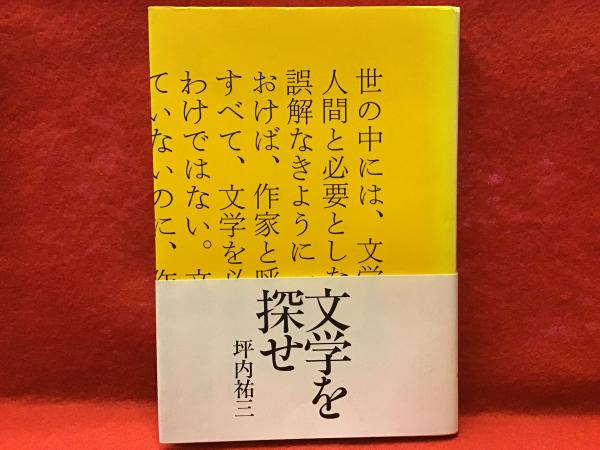 世の中には、文学
人間と必要とした
誤解なきように
おけば、作家と呼
すべて、文学を必
わけではない。文
ていないのに、作
文学を
探せ
坪内祐三